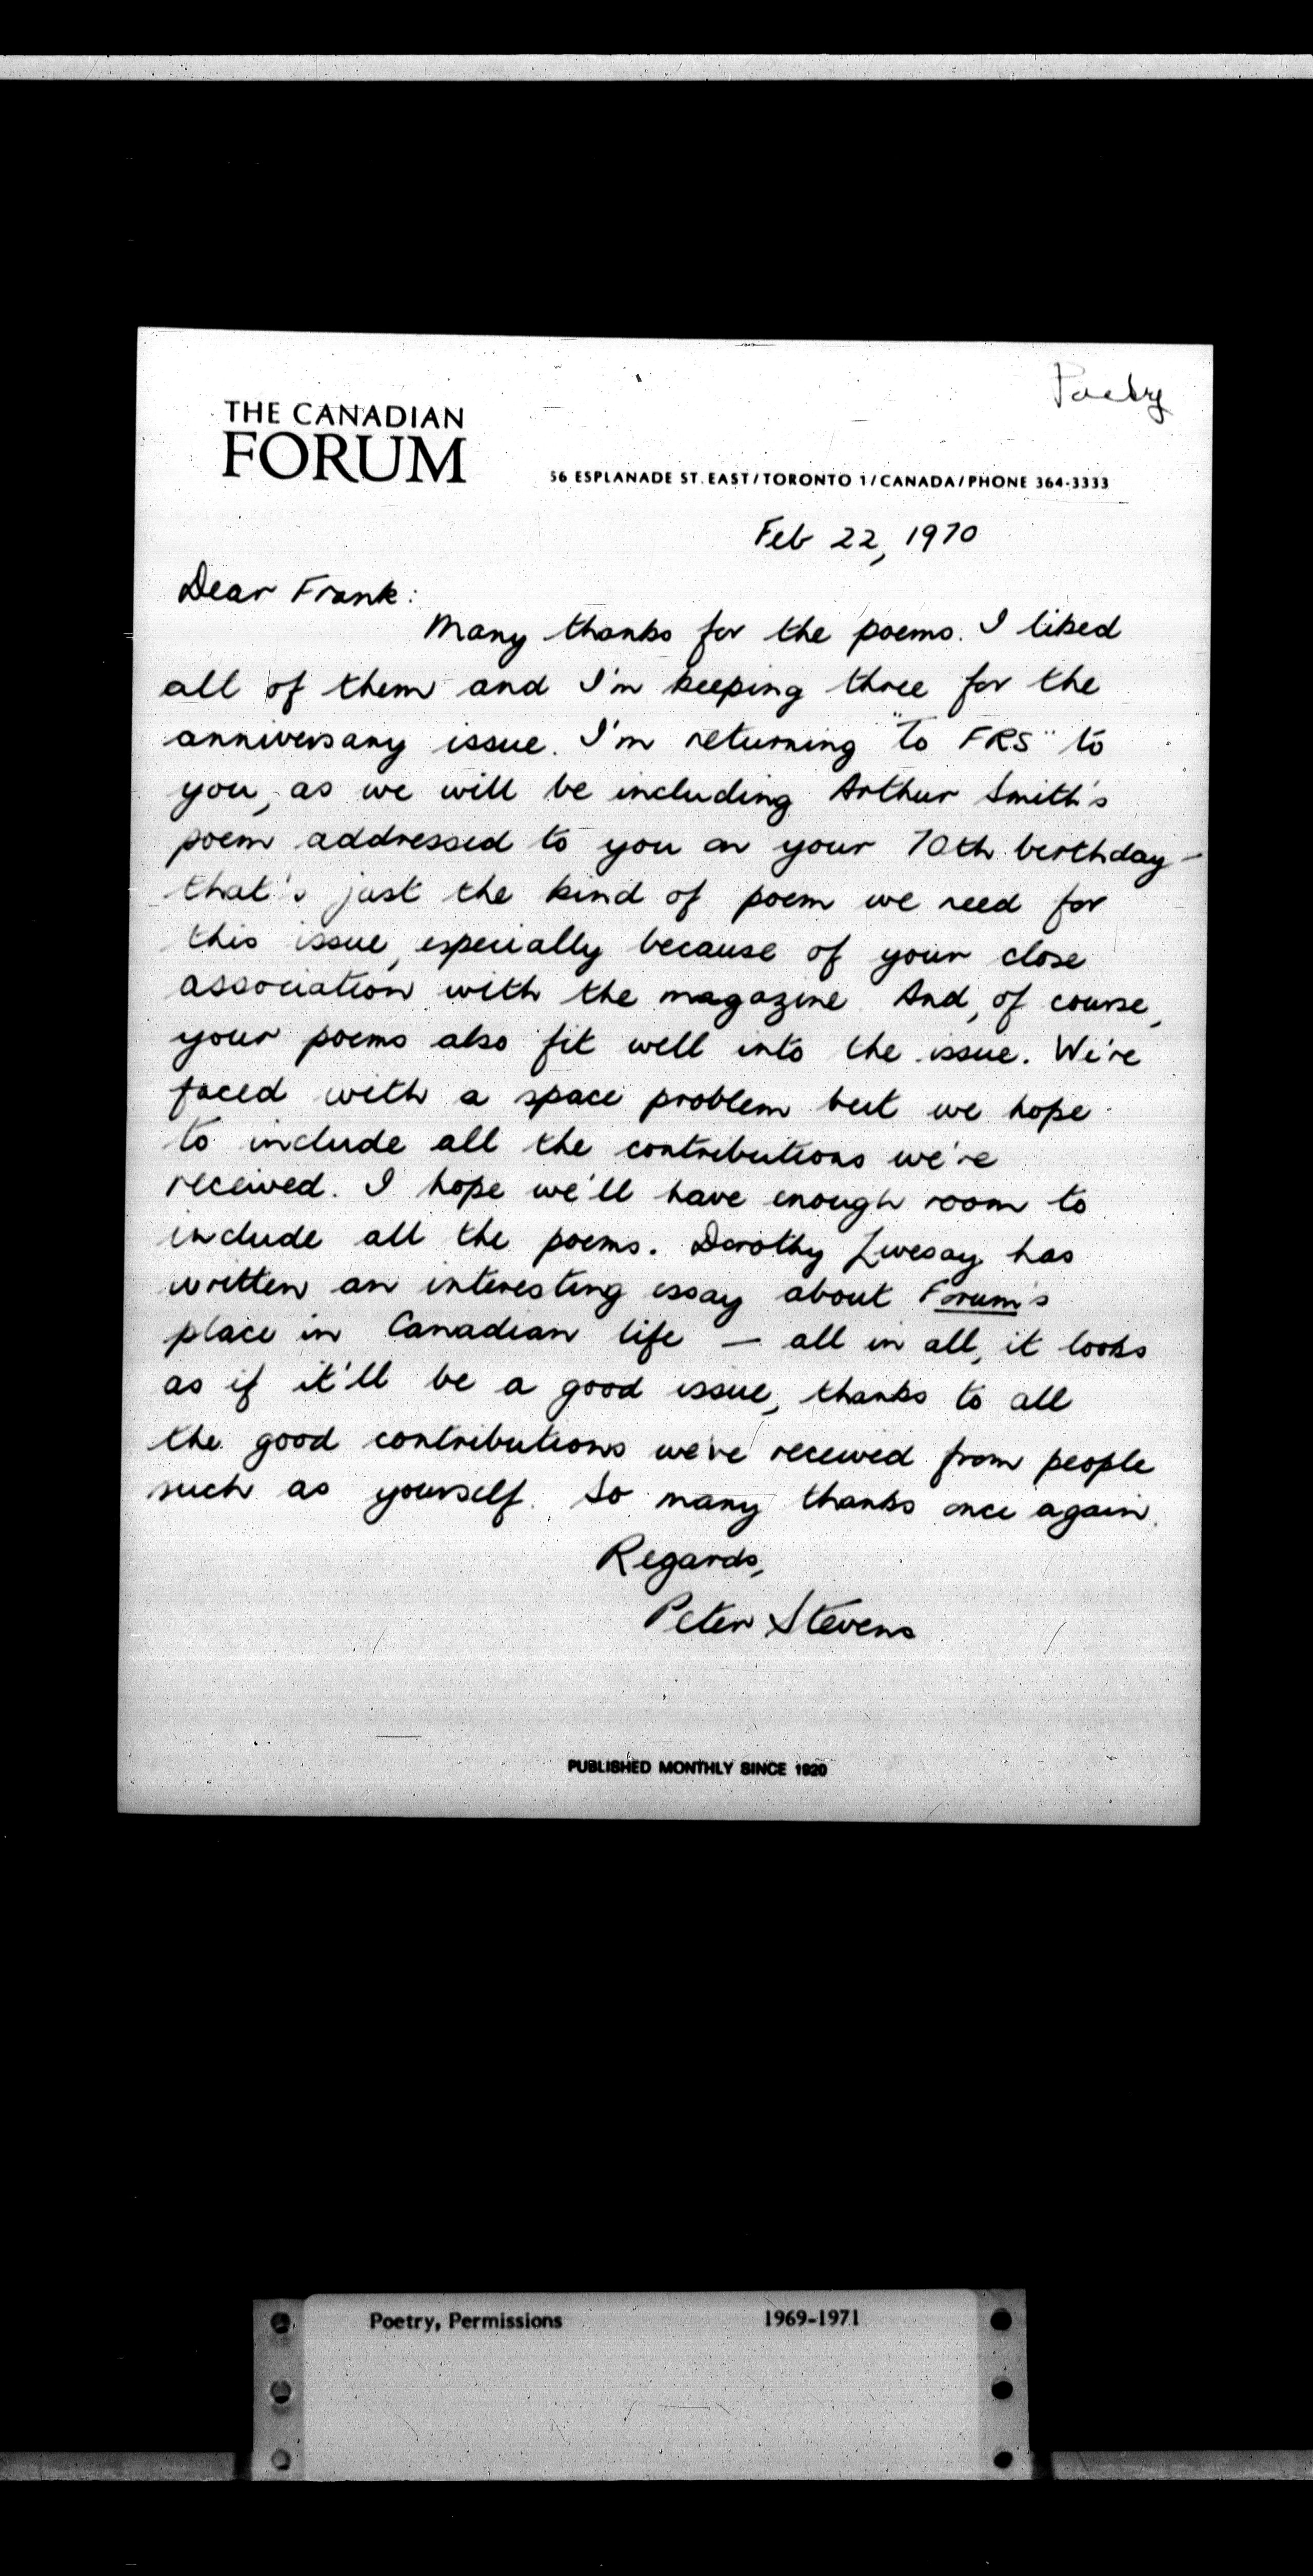 Poetry
THE CANADIAN
FORUM
56 ESPLANADE ST. EAST/TORONTO 1/CANADA/PHONE 364-3333
Feb 22, 1970
Dear Frank:
Many thanks for the poems. I liked
all of them and I'm keeping three for the
anniversary issue. I'm returning "To FRS" to
you, as we will be including Arthur Smith's
poem addressed to you on your 70th birthday –
that's just the kind of poem we need for
this issue, especially because of your close
association with the magazine. And, of course,
your poems also fit well into the issue. We're
faced with a space problem but we hope
to include all the contributions we've
received. I hope we'll have enough room to
include all the poems. Dorothy Livesay has
written an interesting essay about Forum's
place in Canadian life — all in all, it looks
as if it'll be a good issue, thanks to all
the good contributions we've received from people
such as yourself. So many thanks once again.
Regards,
Peter Stevens
PUBLISHED MONTHLY SINCE 1920
Poetry, Permissions 1969-1971